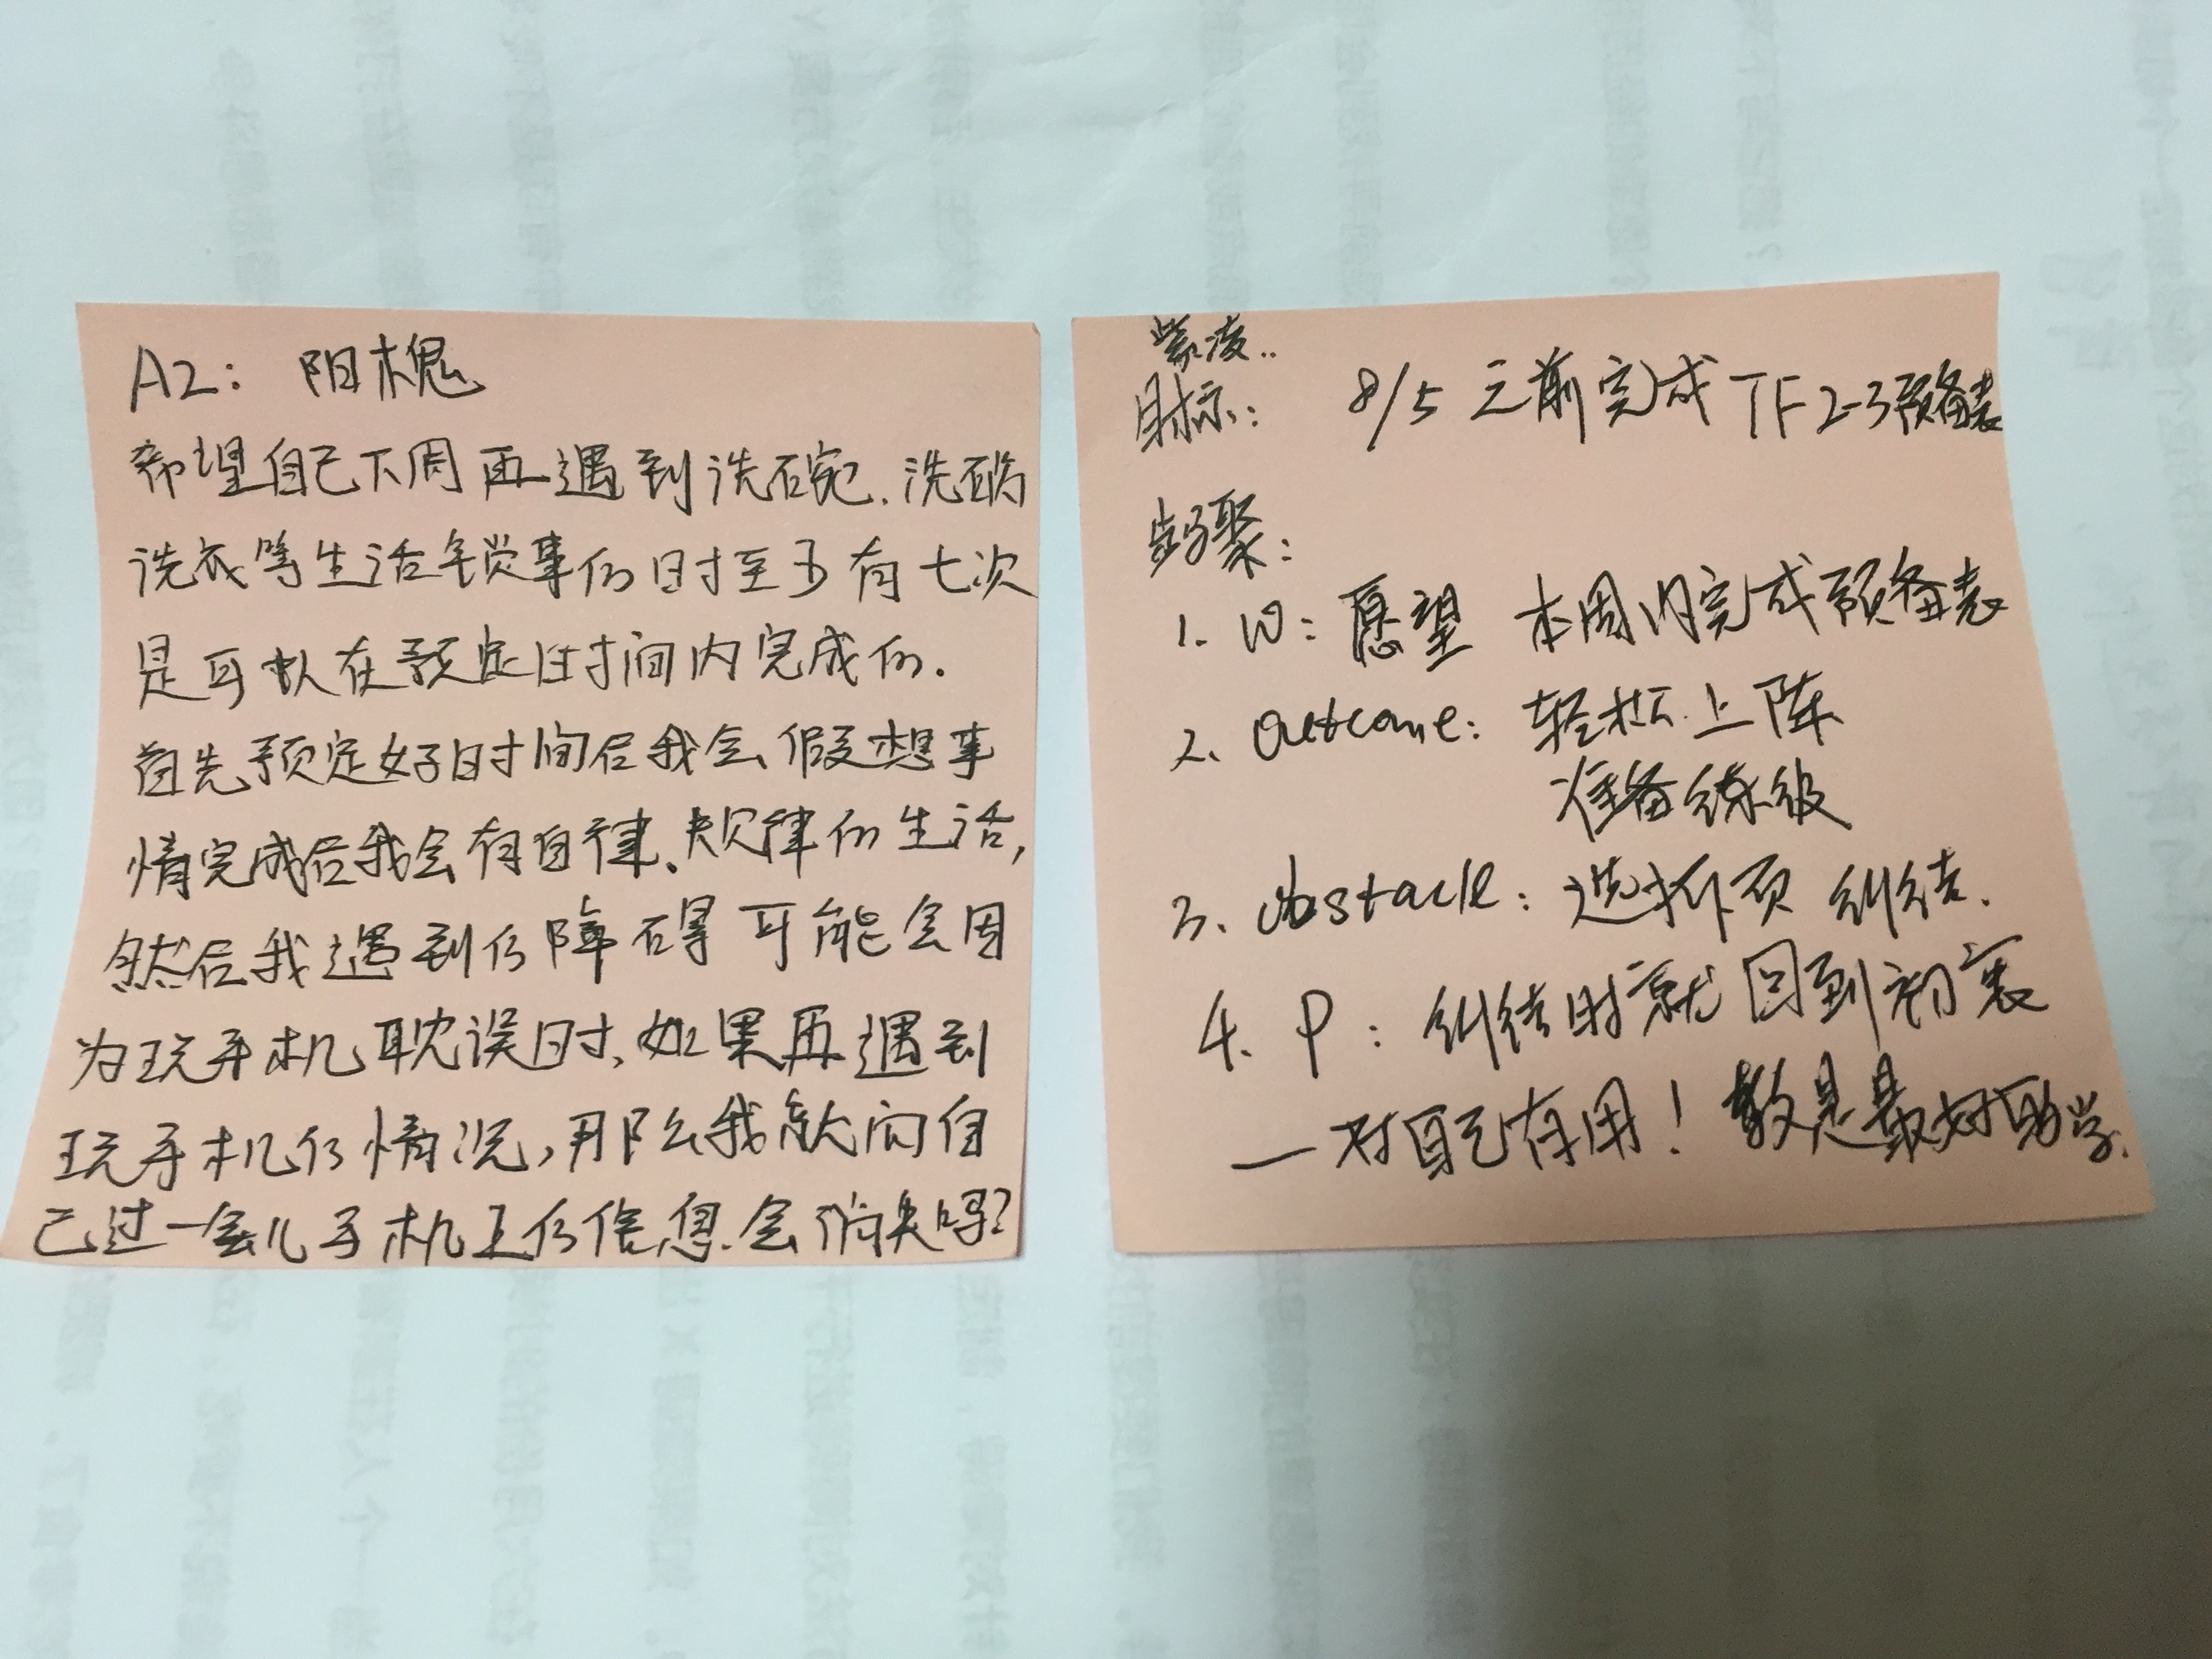 A2: 阳槐
希望自己下周再遇到洗碗、洗锅
洗衣等生活锁事的时至少有七次
是可以在预定时间内完成的.
首先预定好时间后我会假想事
情完成后我会有自律、规律的生活,
然后我遇到的障碍可能会因
为玩手机耽误时,如果再遇到
玩手机的情况,那么我就问自
己过一会儿手机上的信息会消失吗?
紫凌..
目标: 8/5 之前完成 TF2-3预备表
步骤:
1. W: 愿望 本周内完成预备表
2. Outcome: 轻松上阵
准备练级
3. Obstacle: 选拆页 纠结.
4. P: 纠结时就回到初衷
—对自己有用! 教是最好的学.